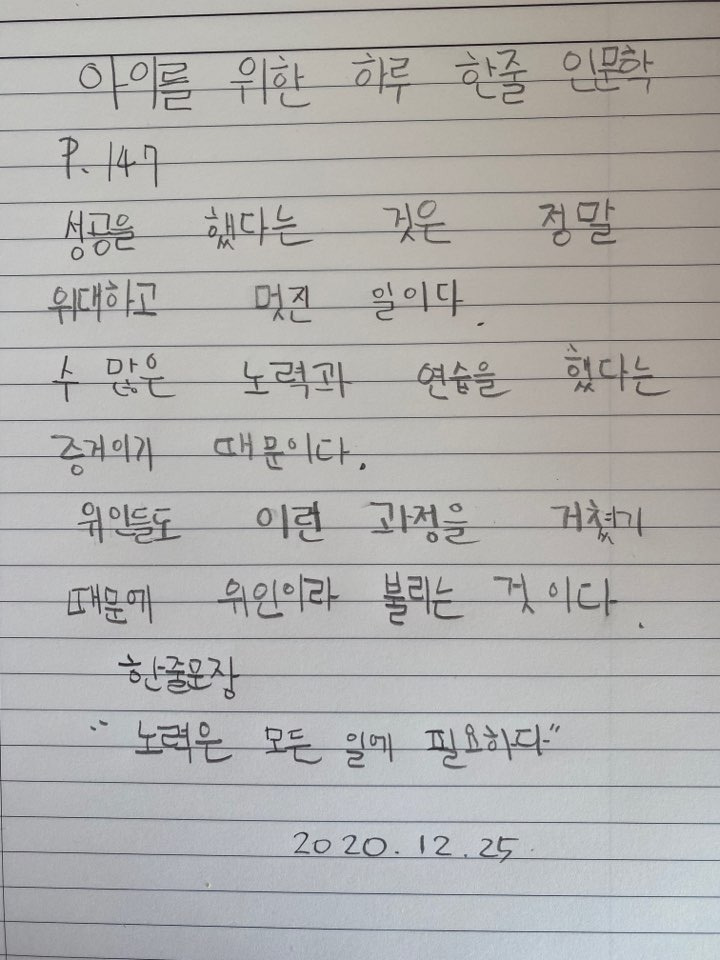 아이를 위한 하루 한줄 인문학
P. 147
성공을 했다는 것은 정말
위대하고 멋진 일이다.
수 많은 노력과 연습을 했다는
증거이기 때문이다.
위인들도 이런 과정을 거쳤기
때문에 위인이라 불리는 것이다.
한줄문장
“ 노력은 모든 일에 필요하다”
2020. 12. 25